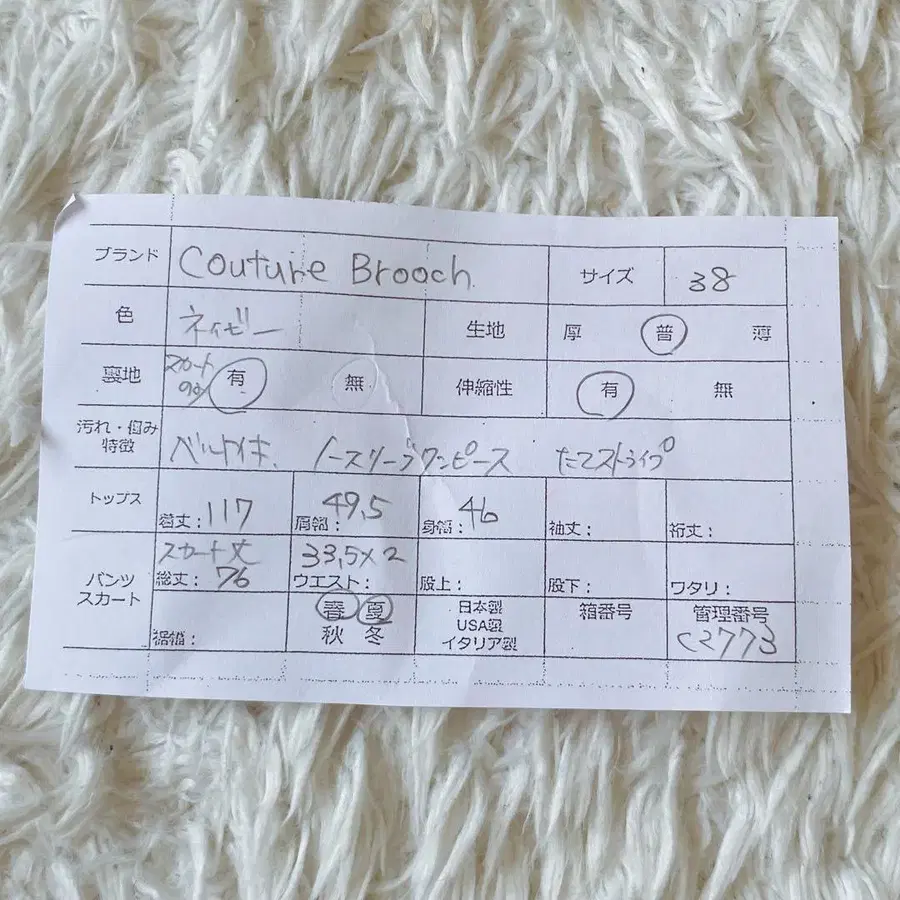 ブランド Couture Brooch サイズ 38
色 ネイビー 生地 厚 普 薄
裏地 スカートのみ 有 無 伸縮性 有 無
汚れ・傷み
特徴 ベルト付 ノースリーブワンピース たてストライプ
トップス 着丈：117 肩幅：49,5 身幅：46 袖丈： 裄丈：
パンツ
スカート スカート丈
総丈：76 33,5×2
ウエスト： 股上： 股下： ワタリ：
裾幅： 春 夏
秋 冬 日本製
USA製
イタリア製 箱番号 管理番号
C2773